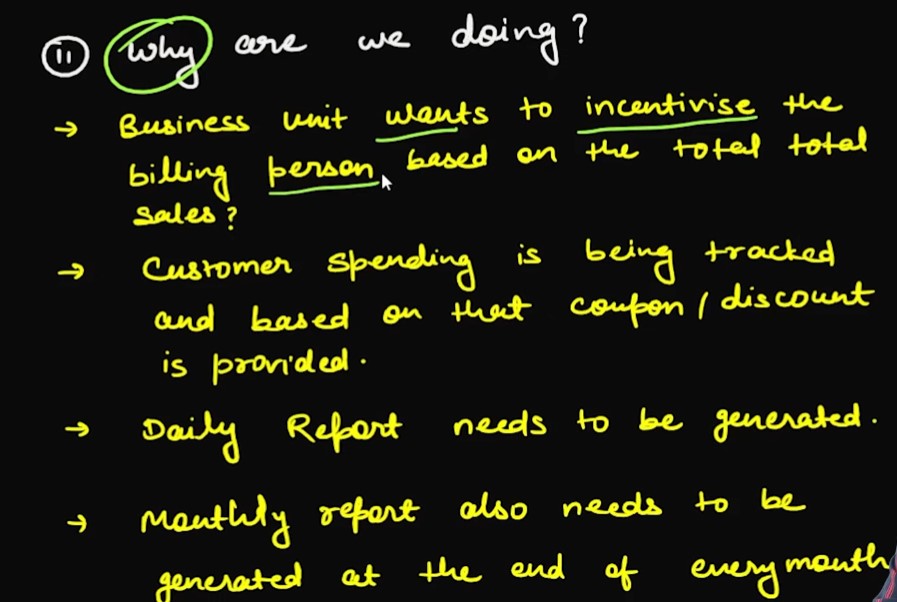 ii) Why are we doing?
→ Business unit wants to incentivise the
billing person based on the total total
sales?
→ Customer spending is being tracked
and based on that coupon / discount
is provided.
→ Daily Report needs to be generated.
→ Monthly report also needs to be
generated at the end of every month